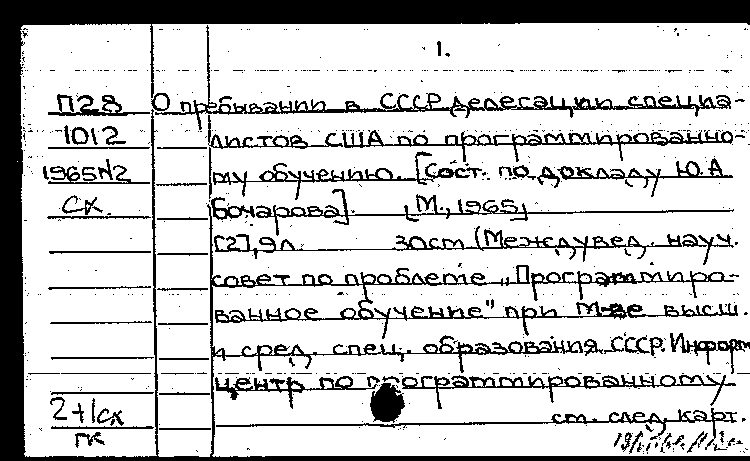 1.
П28 О пребывании в СССР делегации специа-
1012 листов США по программированно-
1965N2 му обучению. [Сост. по докладу Ю.А
СК. Бочарова]. [М., 1965]
[2], 9л. 30см (Междувед. науч.
совет по проблеме „Программиро-
ванное обучение" при М-ве высш.
и сред. спец. образования СССР. Информ
центр по программированному
2+1ск см. след. карт.
ГК